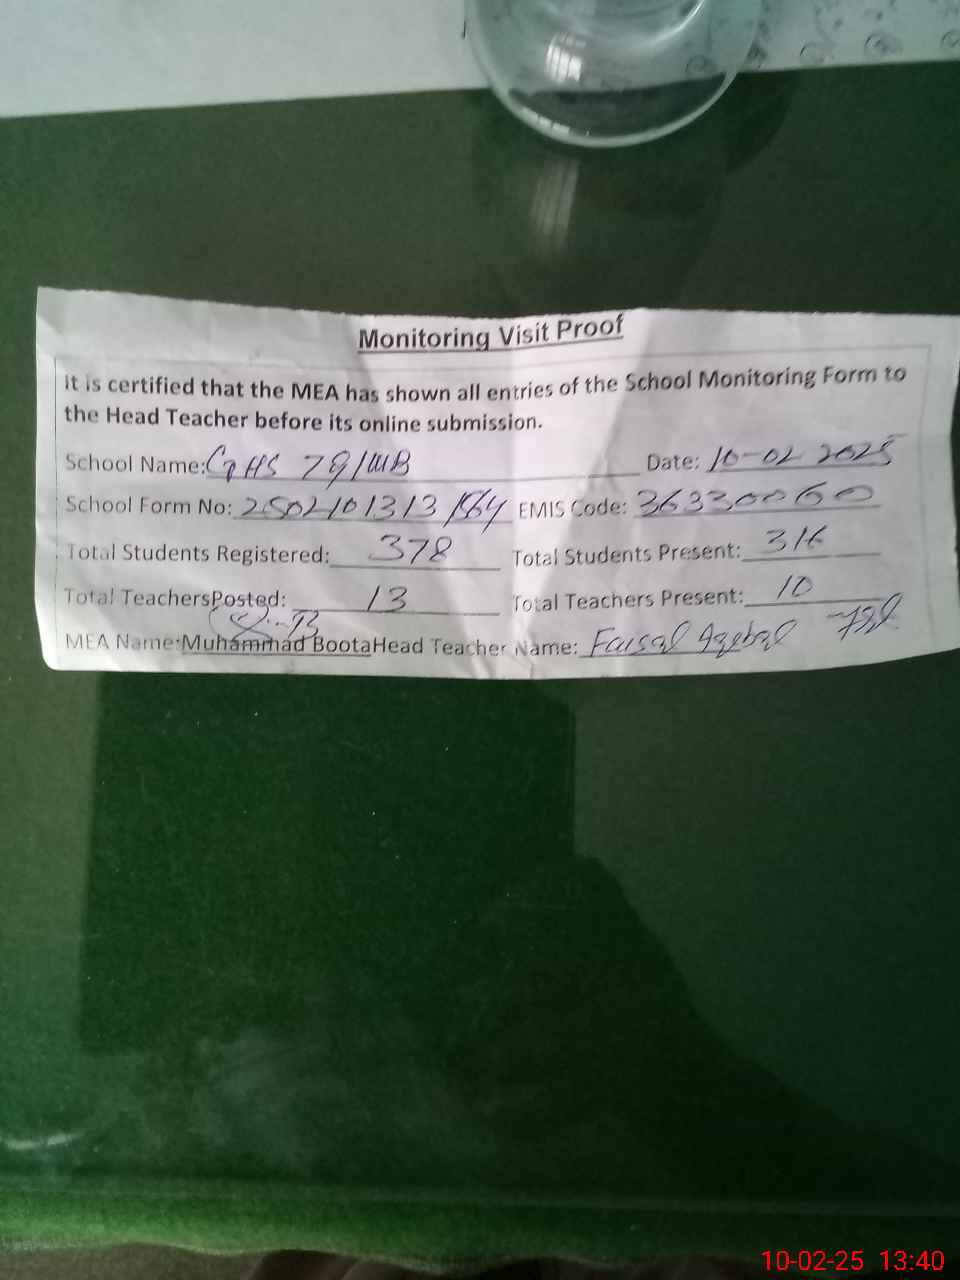 Monitoring Visit Proof
It is certified that the MEA has shown all entries of the School Monitoring Form to
the Head Teacher before its online submission.
School Name: GHS 79/MB Date: 10-02 2025
School Form No: 2502101313 1564 EMIS Code: 36330060
Total Students Registered: 378 Total Students Present: 316
Total TeachersPosted: 13 Total Teachers Present: 10
MEA Name:Muhammad BootaHead Teacher Name: Faisal Iqbal
10-02-25 13:40